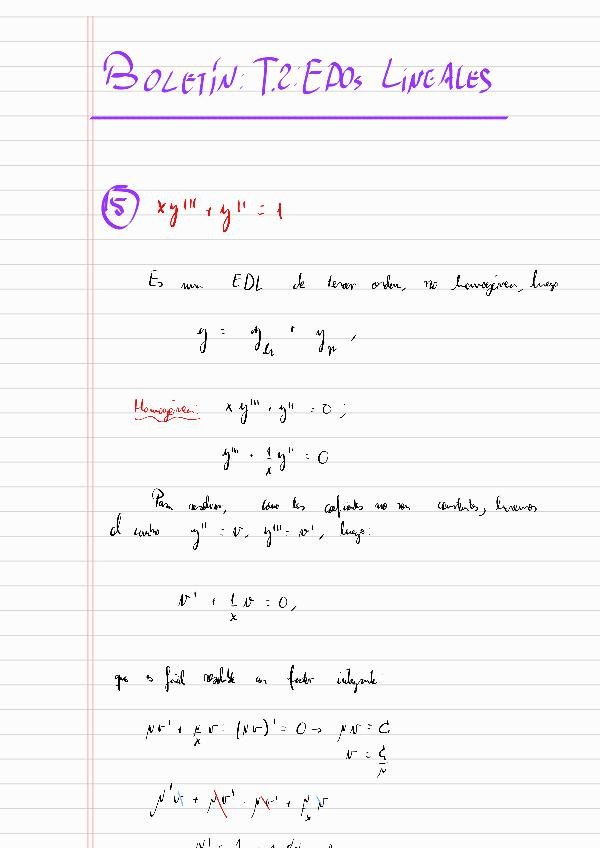 BOLETÍN: T.2: EDOs LINEALES
5 xy''' + y'' = 1
Es una EDL de tercer orden, no homogénea, luego
y = y_h + y_p,
Homogénea: xy''' + y'' = 0;
y''' + 1/x y'' = 0
Para resolver, como los coeficientes no son constantes, hacemos
el cambio y'' = v, y''' = v', luego:
v' + 1/x v = 0,
que es fácil resolver con factor integrante
μv' + μ/x v = (μv)' = 0 → μv = C
v = C/μ
μ'v + μv' = μv' + μ/x v